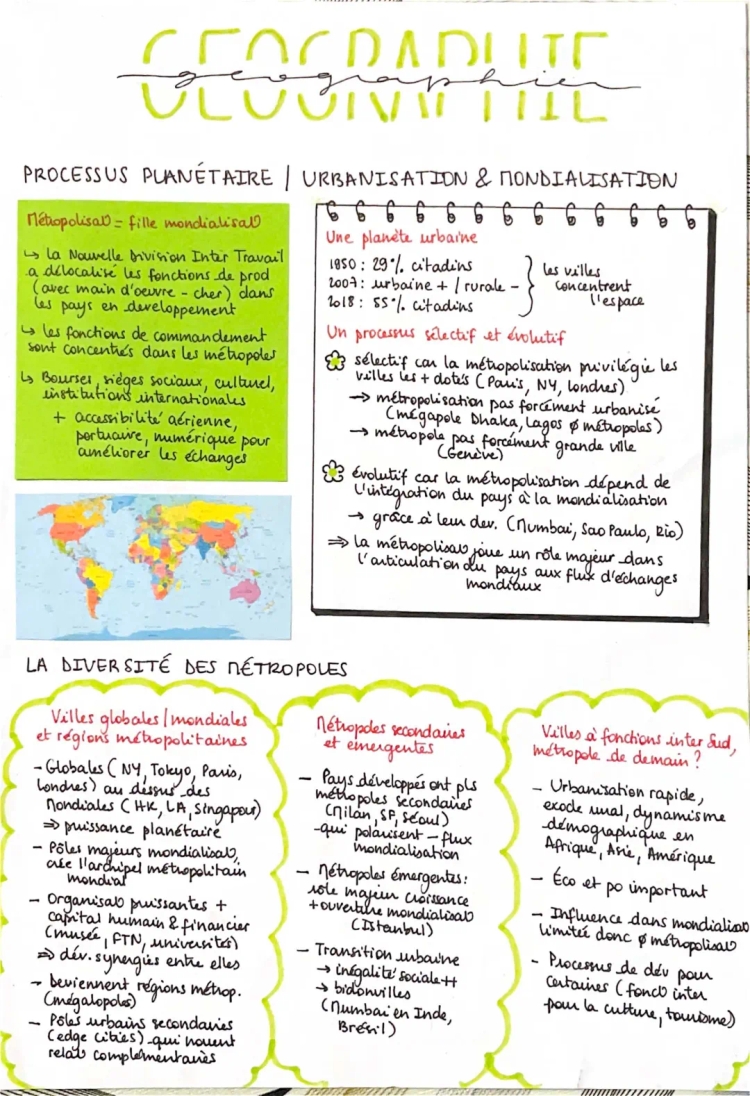 GEOGRAPHIE
geographie
PROCESSUS PLANÉTAIRE / URBANISATION & MONDIALISATION
Métropolisat° = fille mondialisat°
↳ la Nouvelle Division Inter Travail
a délocalisé les fonctions de prod
(avec main d'oeuvre - cher) dans
les pays en developpement
↳ les fonctions de commandement
sont concentrés dans les métropoles
↳ Bourses, sièges sociaux, culturel,
institutions internationales
+ accessibilité aérienne,
portuaire, numérique pour
améliorer les échanges
Une planète urbaine
1950 : 29% citadins
2007 : urbaine + / rurale -
2018 : 55% citadins
les villes
concentrent
l'espace
Un processus sélectif et évolutif
sélectif car la métropolisation privilégie les
villes les + dotés (Paris, NY, Londres)
→ métropolisation pas forcément urbanisé
(mégapole Dhaka, Lagos ∅ métropoles)
→ métropole pas forcément grande ville
(Genève)
évolutif car la métropolisation dépend de
l'intégration du pays à la mondialisation
→ grâce à leur dev. (Mumbai, Sao Paulo, Rio)
⇒ la métropolisat° joue un rôle majeur dans
l'articulation du pays aux flux d'échanges
mondiaux
LA DIVERSITÉ DES MÉTROPOLES
Villes globales/mondiales
et régions métropolitaines
- Globales (NY, Tokyo, Paris,
Londres) au dessus des
Mondiales (HK, LA, Singapour)
⇒ puissance planétaire
- Pôles majeurs mondialisat°,
crée l'archipel métropolitain
mondial
- Organisat° puissantes +
capital humain & financier
(musée, FTN, universités)
⇒ dév. synergies entre elles
- Deviennent régions métrop.
(mégalopoles)
- Pôles urbains secondaires
(edge cities) qui nouent
relat° complémentaires
Métropoles secondaires
et émergentes
- Pays développés ont pls
métropoles secondaires
(Milan, SF, Séoul)
qui polarisent - flux
mondialisation
- Métropoles émergentes :
rôle majeur croissance
+ ouverture mondialisat°
(Istanbul)
- Transition urbaine
→ inégalité sociale ++
→ bidonvilles
(Mumbai en Inde,
Brésil)
Villes à fonctions inter Sud,
métropole de demain ?
- Urbanisation rapide,
exode rural, dynamisme
démographique en
Afrique, Asie, Amérique
- Éco et po important
- Influence dans mondialisat°
limitée donc ∅ métropolisat°
- Processus de dév pour
certaines (fonct° inter
pour la culture, tourisme)